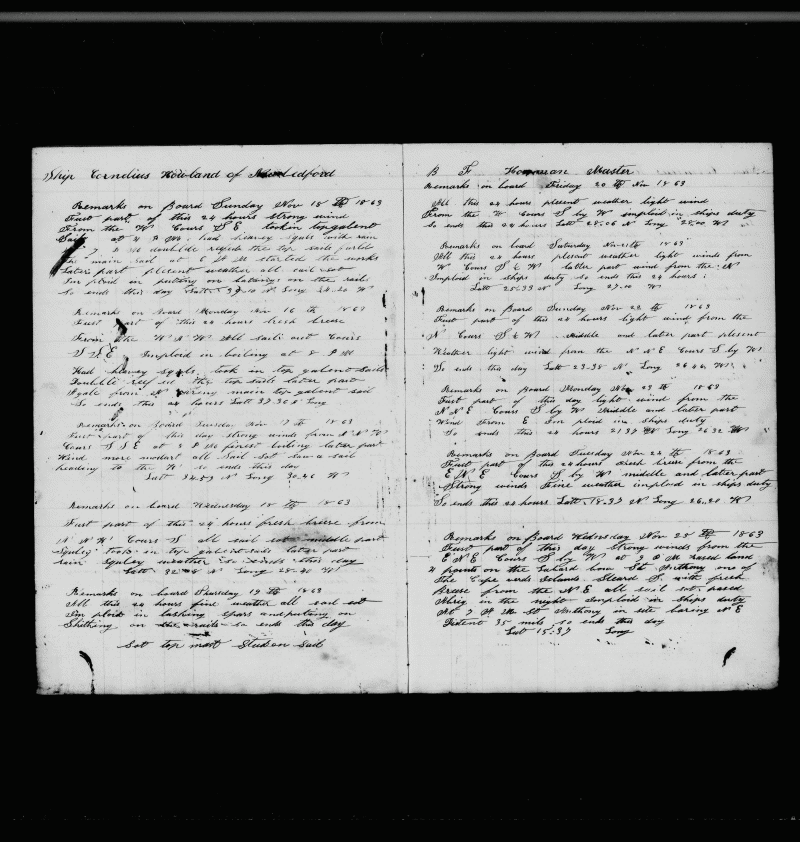 Ship Cornelius Howland of Bedford
Remarks on Board Sunday Nov 15 th 1863
First part of this 24 hours Strong wind
From the W Cours S E tookin topgalent
Sails at 4 P M had heavey squls with rain
double reefed the top sails furld
the main sail at 6 A M started the works
Later part plesent weather all sail sot
Im ploid in puting on battons on the rails
So ends this day Latt 39.10 N Long 34.20 W
Remarks on Board Monday Nov 16 th 1863
First part of this 24 hours fresh brese
From the W N W All sail out Cours
S S E Imploid in boiling at 8 P M
Had heavey sqals took in top galent Sails
Double reef ed the top sails later part
Agale from N main top galent sail
So ends this 24 hours Latt 37.30 Long
Remarks on Board Tuesday Nov 17 th 1863
First part of this day strong winds from N N W
Cours S S E at 3 P M finest boiling later part
Wind more modert all Sail Sot Saw a sail
heading to the W so ends this day
Latt 34.59 N Long 30.46 W
Remarks on board Wednesday 18 th 1863
First part of this 24 hours fresh breese from
N N W Cours S all sail sot middle part
Squley took in top galent sails later part
rain Squley weather so ends this day
Latt 32 N Long 28.40 W
Remarks on board Thursday 19 th 1863
All this 24 hours fine weather all sail sot
Im ploid in lashing spars and puting on
Shething on the rails so ends this day
Sot top mast Studen Sail
B F Homan Master
Remarks on board Friday 20 th Nov 1863
All this 24 hours plesent weather light wind
From the W Cours S by W imploid in ships duty
So ends this 24 hours Latt 28.06 N Long 28.00 W
Remarks on board Saturday Nov 21 th 1863
All this 24 hours plesent weather light winds from
W Cours S E W latter part wind from the N
Imploid in ships duty so ends this 24 hours
Latt 25.39 N Long 27.10 W
Remarks on Board Sunday Nov 22 th 1863
First part of this 24 hours light wind from the
N Cours S E W Middle and later part plesent
Weather light wind from the N N E Cours S by W
So ends this day Latt 23.38 N Long 26.44 W
Remarks on Board Monday Nov 23 th 1863
First part of this day light wind from the
N N E Cours S by W Middle and later part
Wind From E Im ploid in ships duty
So ends this 24 hours 21.39 N Long 26.32 W
Remarks on Board Tuesday Nov 24 th 1863
First part of this 24 hours Fresh brese from the
E N E Cours S by W middle and later part
Strong winds Fine weather imploid in ships duty
So ends this 24 hours Latt 18.37 N Long 26.20 W
Remarks on Board Wednesday Nov 25 th 1863
First part of this day Strong winds from the
E N E Cours S by W at 3 P M rased land
4 points on the Lubard bow St Anthony one of
the Cape verds Islands Steard S. with fresh
Brese from the N E all sail sot, pased
Abrig in the night Imploid in Ships duty
At 7 A M St Anthony in site baring N E
Distent 35 mile so ends this day
Latt 15.37 Long